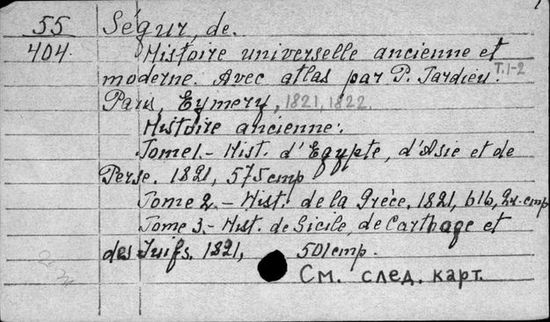 55 Ségur, de.
404. Histoire universelle ancienne et
moderne. Avec atlas par P. Tardieu. T.1-2
Paris, Eymery, 1821, 1822.
Histoire ancienne:
Tome 1.- Hist. d'Egypte, d'Asie et de
Perse. 1821, 575 стр
Tome 2.- Hist. de la Grèce, 1821, 616, 2 л. стр
Tome 3.- Hist. de Sicile, de Carthage et
des Juifs. 1821, 501 стр.
См. след. карт.